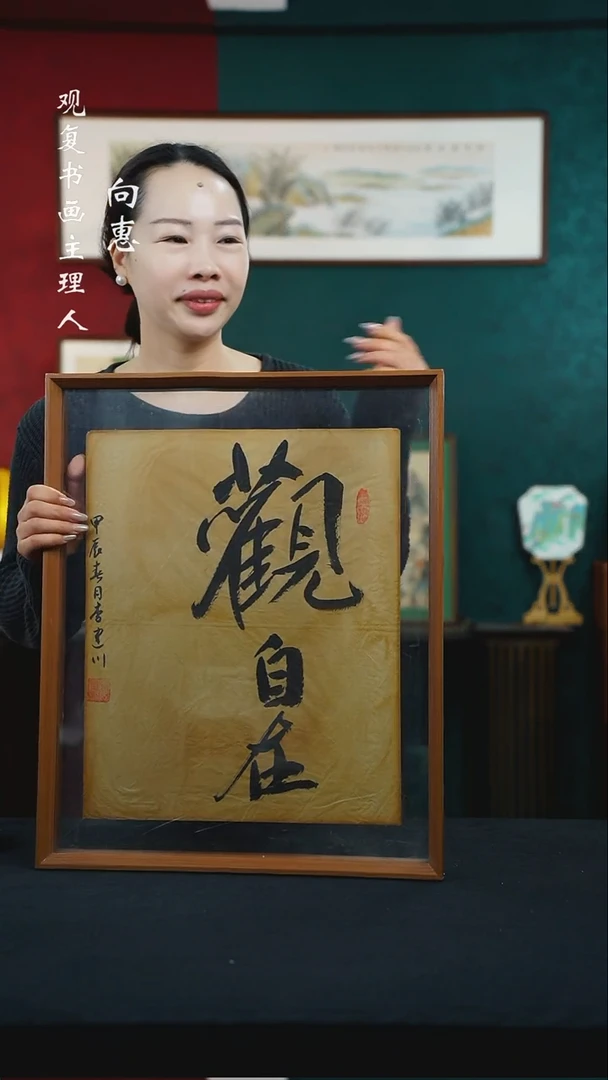 观复书画主理人
向惠
觀自在
甲辰春月李建川